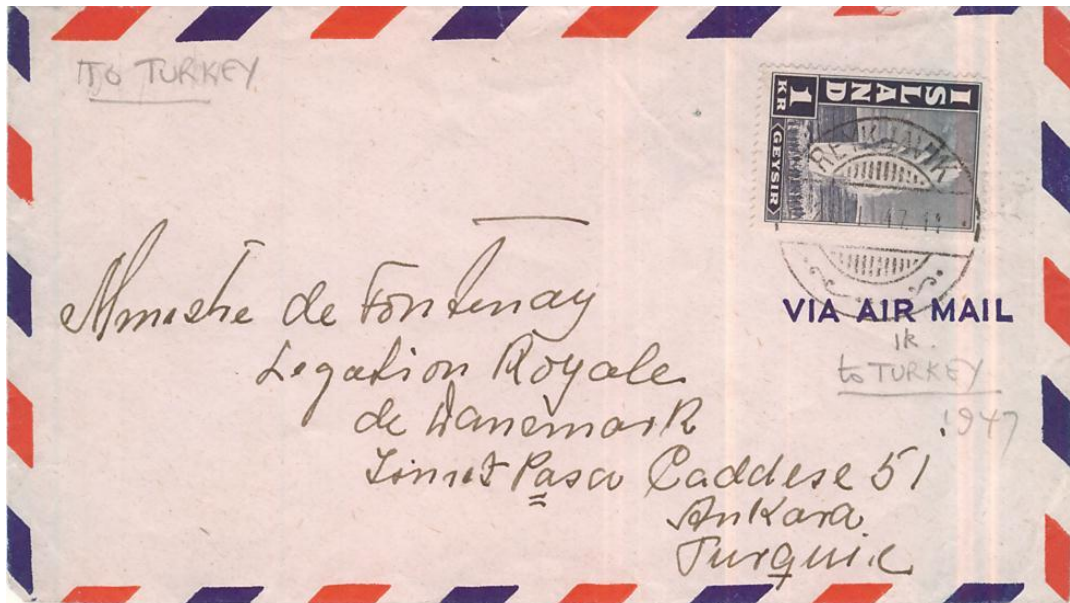 TO TURKEY
ISLAND
1 KR
GEYSIR
REYKJAVIK
47. 11
VIA AIR MAIL
1k.
to TURKEY
1947
Ministre de Fontenay
Legation Royale
de Danemark
Ismet Pasa Caddese 51
Ankara
Turquie